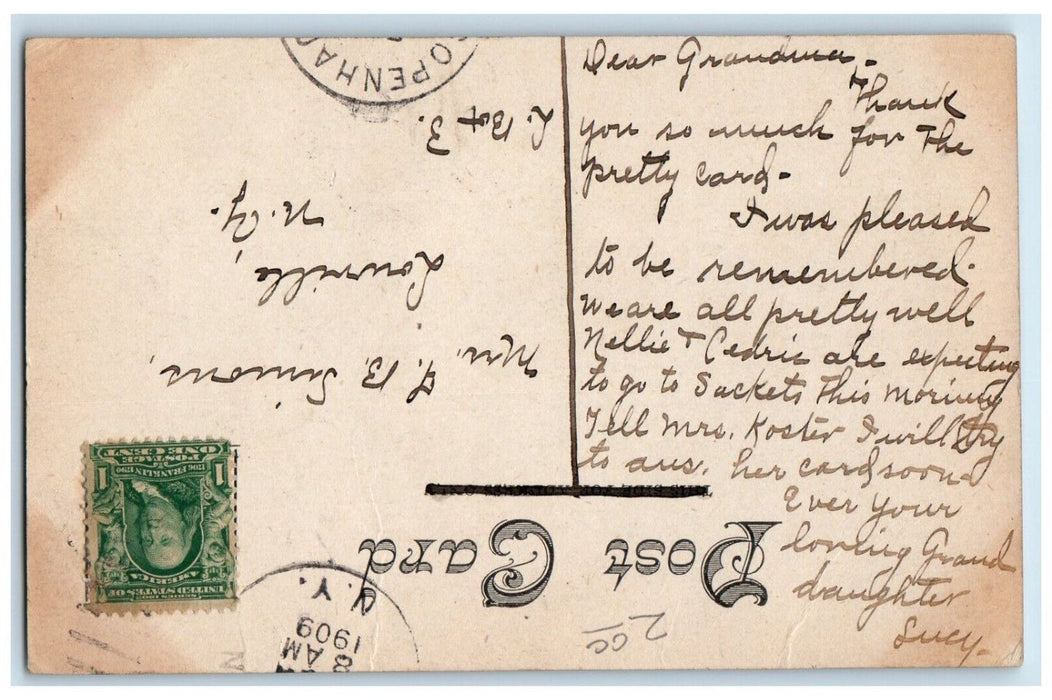 Dear Grandma.
Thank
you so much for the
pretty card.
I was pleased
to be remembered.
We are all pretty well
Nellie + Cedric are expecting
to go to Sackets this morning
Tell Mrs. Koster I will try
to ans. her card soon.
Ever your
loving Grand
daughter
Lucy.
Post Card
N. Y.
8
AM
1909
SERIES 1902
UNITED STATES OF
AMERICA
FRANKLIN
POSTAGE
1 ONE CENT 1
Mrs. F. B. Simons,
Lowville,
N. Y.
COPENHAG
2 cc